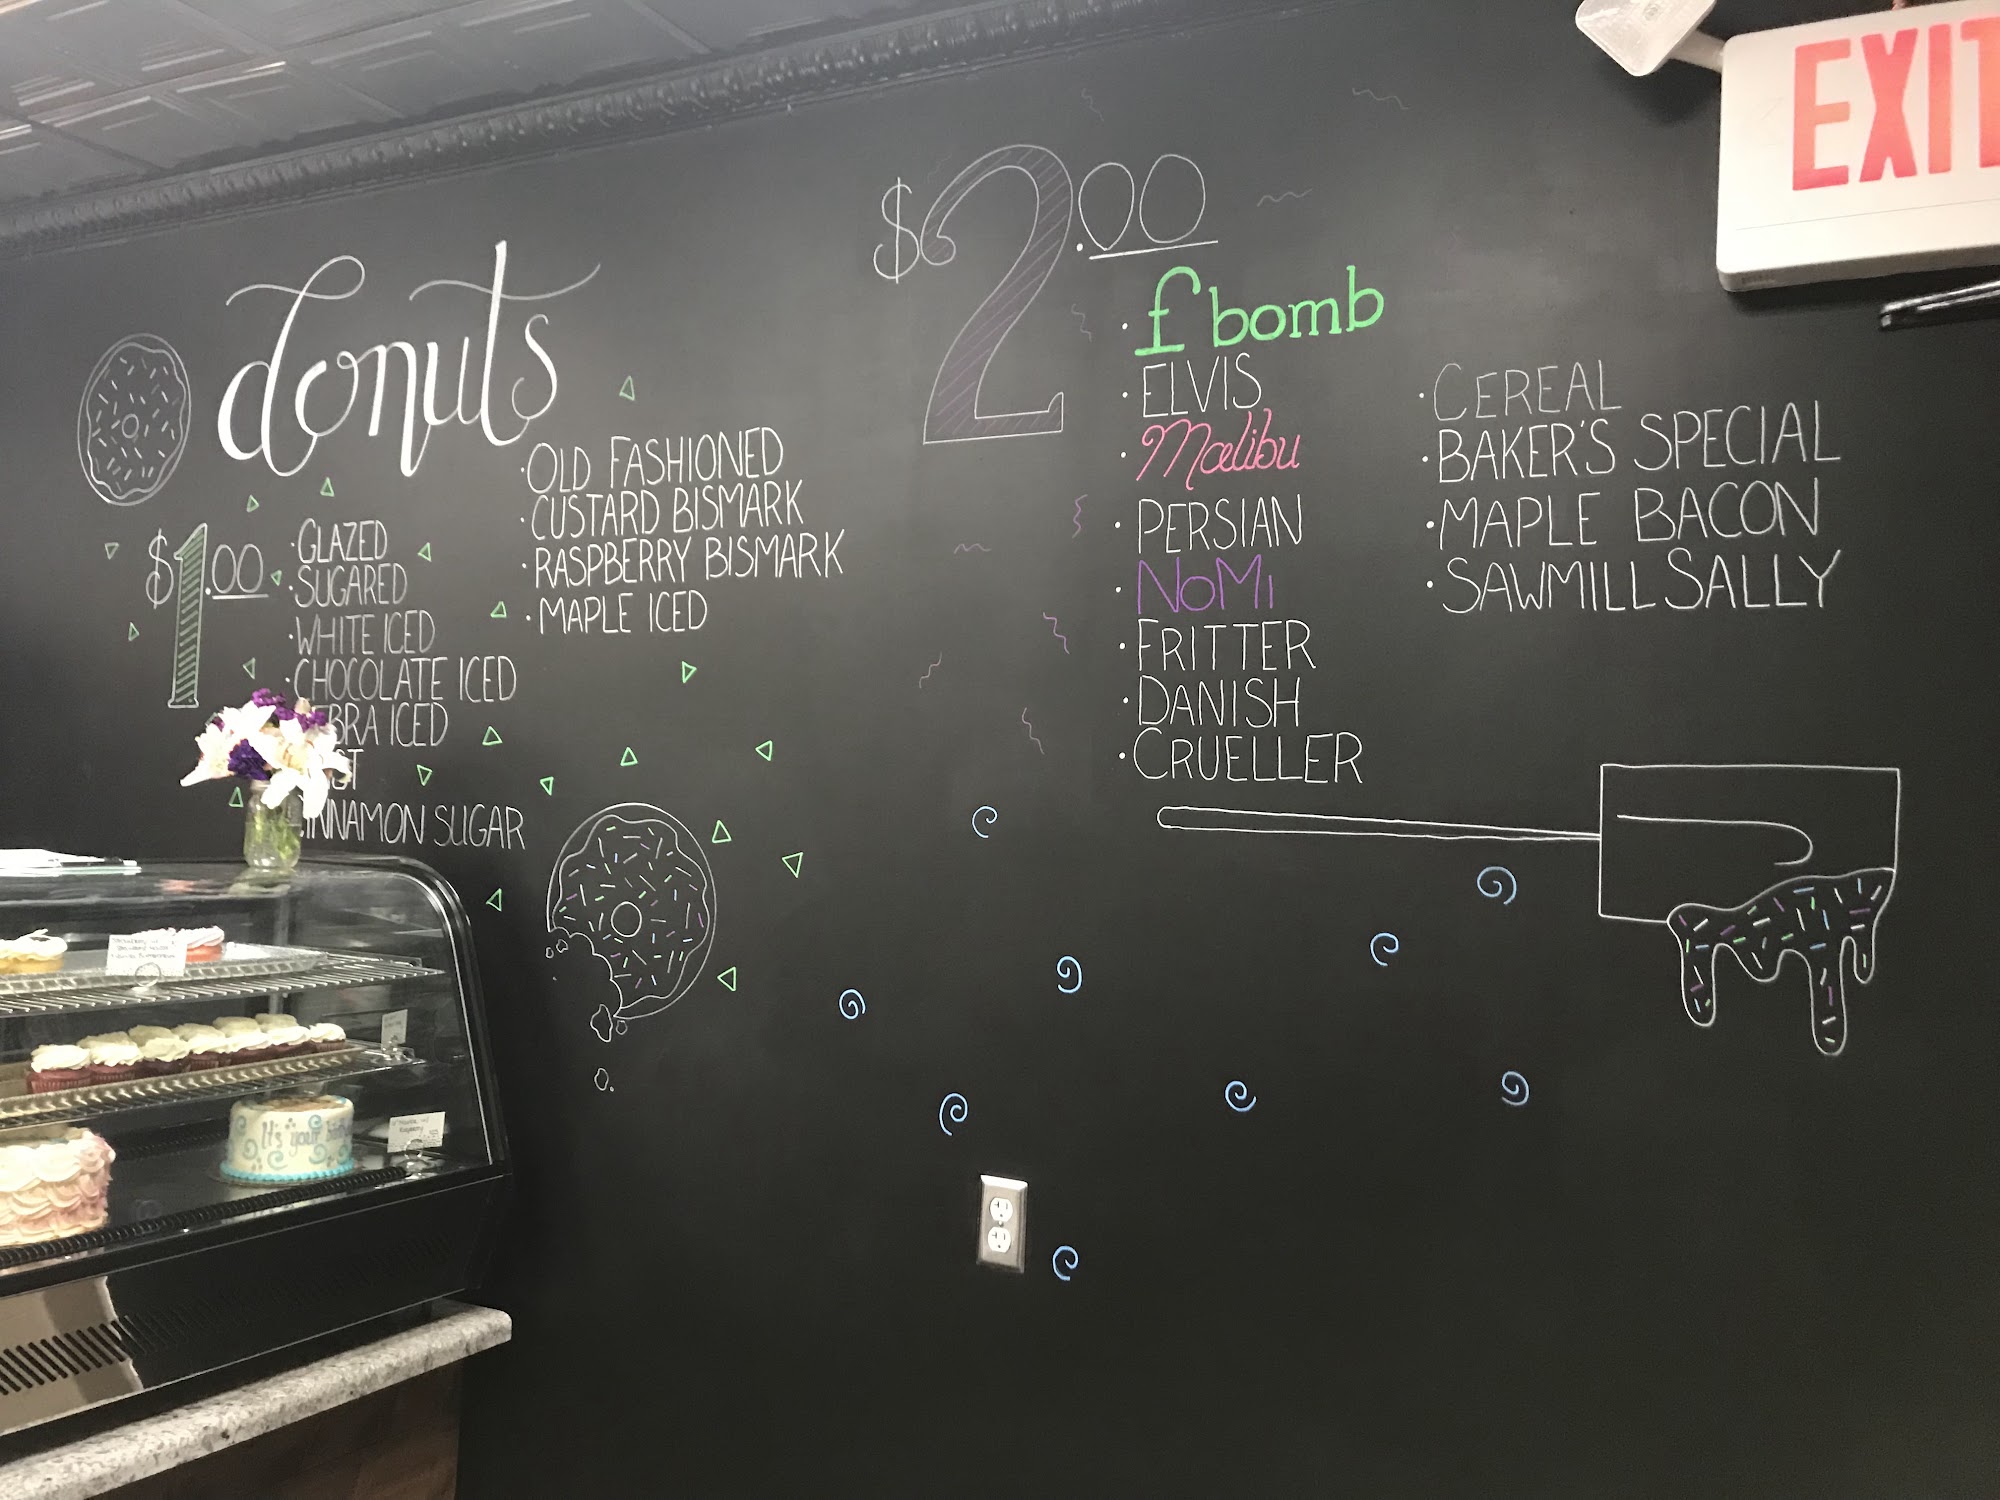 EXIT
donuts
$1.00
· GLAZED
· SUGARED
· WHITE ICED
· CHOCOLATE ICED
BRA ICED
CINNAMON SUGAR
· OLD FASHIONED
· CUSTARD BISMARK
· RASPBERRY BISMARK
· MAPLE ICED
$2.00
· f bomb
· ELVIS
· Malibu
· PERSIAN
· NoMi
· FRITTER
· DANISH
· CRUELLER
· CEREAL
· BAKER'S SPECIAL
· MAPLE BACON
· SAWMILL SALLY
It's your